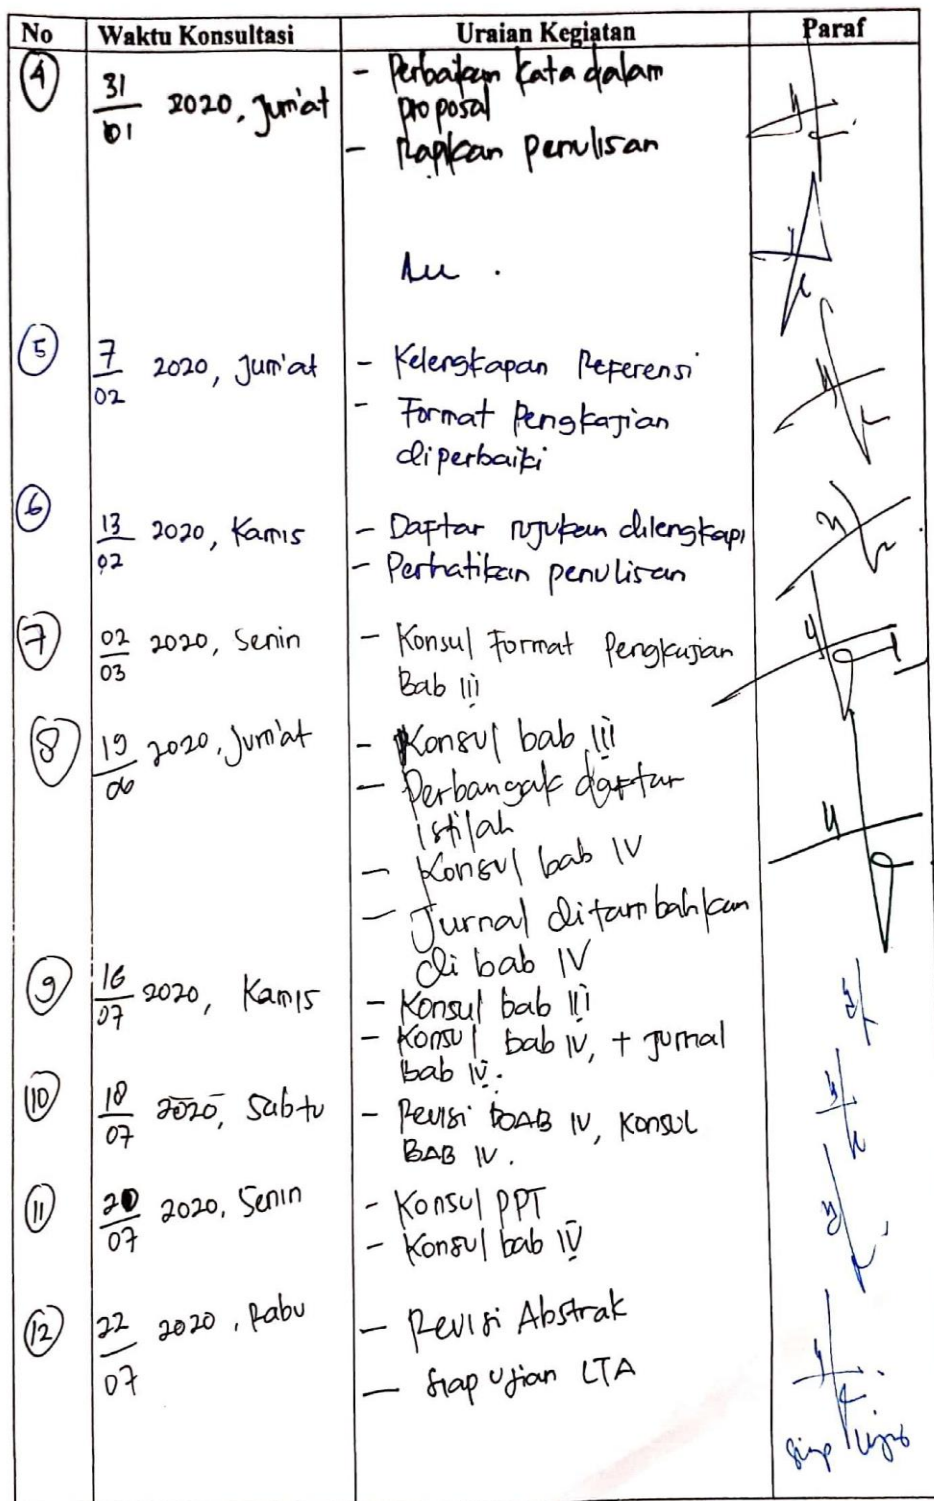 No Waktu Konsultasi Uraian Kegiatan Paraf
4 31/01 2020, Jum'at - Perbaikan kata dalam
proposal
- Rapikan penulisan
Acc .
5 7/02 2020, Jum'at - Kelengkapan Referensi
- Format Pengkajian
diperbaiki
6 13/02 2020, Kamis - Daftar rujukan dilengkapi
- Perhatikan penulisan
7 02/03 2020, Senin - Konsul Format Pengkajian
Bab III
8 19/06 2020, Jum'at - Konsul bab III
- Perbanyak daftar
istilah
- Konsul bab IV
- Jurnal ditambahkan
di bab IV
9 16/07 2020, Kamis - Konsul bab III
- Konsul bab IV, + Jurnal
bab IV.
10 18/07 2020, Sabtu - Revisi BAB IV, Konsul
BAB IV.
11 20/07 2020, Senin - Konsul PPT
- Konsul bab IV
12 22/07 2020, Rabu - Revisi Abstrak
- Siap Ujian LTA
Siap Ujian